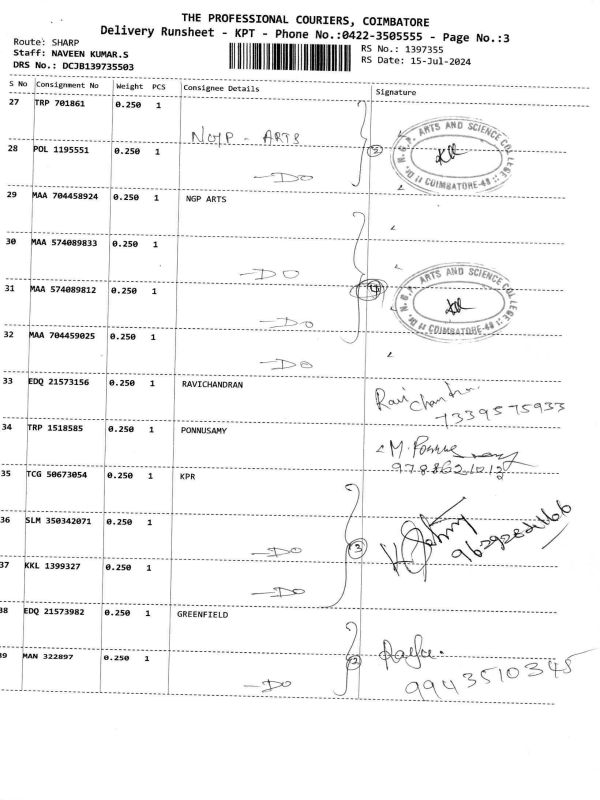 THE PROFESSIONAL COURIERS, COIMBATORE
Delivery Runsheet - KPT - Phone No.:0422-3505555 - Page No.:3
Route: SHARP
Staff: NAVEEN KUMAR.S
DRS No.: DCJB139735503
RS No.: 1397355
RS Date: 15-Jul-2024
S No Consignment No Weight PCS Consignee Details Signature
27 TRP 701861 0.250 1
ARTS
28 POL 1195551 0.250 1 2
-DO
N.G.P. ARTS AND SCIENCE COLLEGE
COIMBATORE-48
29 MAA 704458924 0.250 1 NGP ARTS
30 MAA 574089833 0.250 1
-DO
31 MAA 574089812 0.250 1 4
-DO
N.G.P. ARTS AND SCIENCE COLLEGE
COIMBATORE-48
32 MAA 704459025 0.250 1
-DO
33 EDQ 21573156 0.250 1 RAVICHANDRAN
Ravi Chandran
7339575933
34 TRP 1518585 0.250 1 PONNUSAMY
M. Ponnusamy
9788621012
35 TCG 50673054 0.250 1 KPR
36 SLM 350342071 0.250 1
-DO 3
37 KKL 1399327 0.250 1
-DO
38 EDQ 21573982 0.250 1 GREENFIELD
39 MAN 322897 0.250 1 2
-DO
9943510345